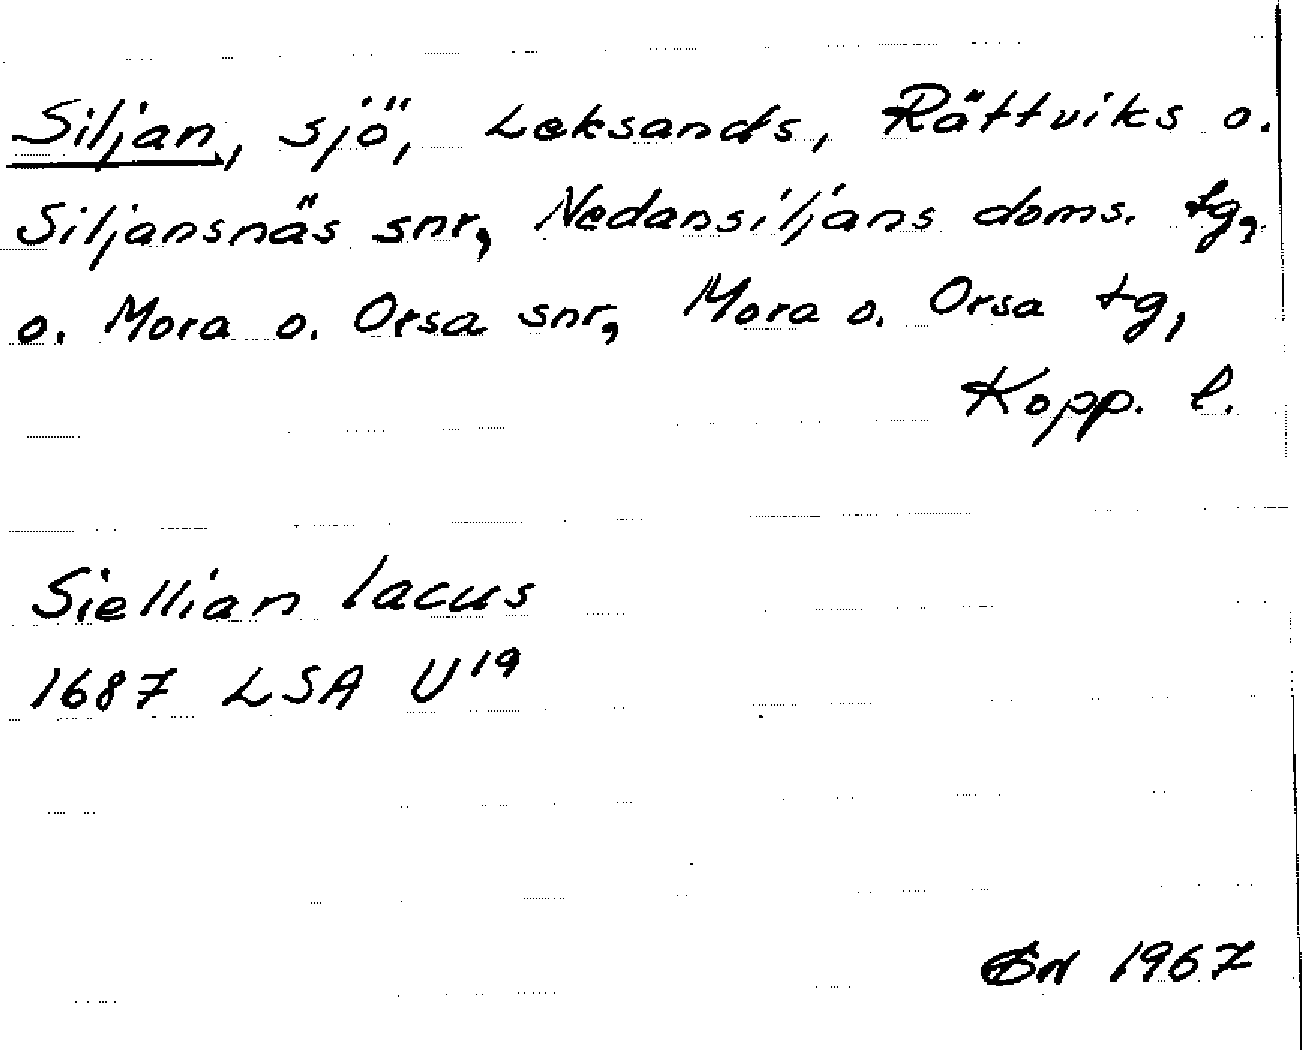 Siljan, sjö, Leksands, Rättviks o.
Siljansnäs snr, Nedansiljans doms. tg,
o. Mora o. Orsa snr, Mora o. Orsa tg,
Kopp. l.
Siellian lacus
1687 LSA U19
1967